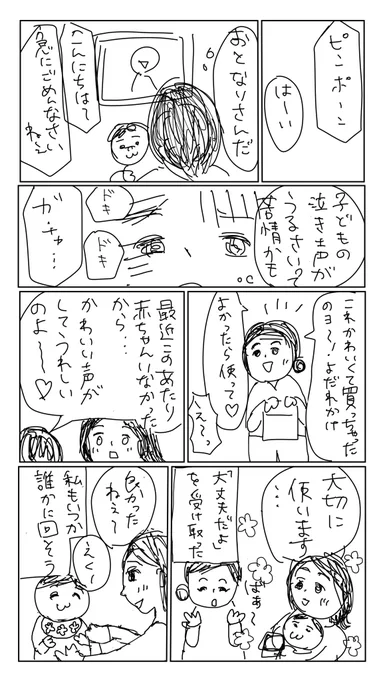 ピンポーン
はーい
おとなりさんだ
こんにちは〜
急にごめんなさい
ねぇ
子どもの
泣き声が
うるさい?
苦情かも
ドキ
ドキ
ガチャ…
これかわいくて買っちゃった
のヨ〜!よだれかけ
よかったら使って♡
えぇ〜っ
最近このあたり
赤ちゃんいなかった
から…
かわいい声が
して、うれしい
のよ〜♡
大切に
使います
…
ばぁ〜
「大丈夫だよ」
を受け取った
良かった
ねぇ〜
えへ〜
私もいつか
誰かに回そう